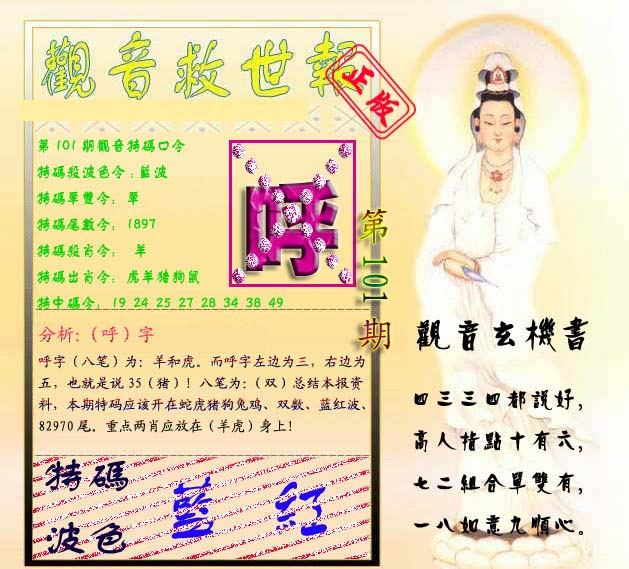 觀音救世報
正版
第101期觀音特碼口令
特碼殺波色令：藍波
特碼單雙令： 單
特碼尾數令： 1897
特碼殺肖令： 羊
特碼出肖令： 虎羊猪狗鼠
特中碼令： 19 24 25 27 28 34 38 49
呼
第101期
分析:（呼）字
呼字（八笔）为：羊和虎。而呼字左边为三，右边为
五，也就是说35（猪）！八笔为：（双）总结本报资
料，本期特码应该开在蛇虎猪狗兔鸡、双数、蓝红波、
82970尾。重点两肖应放在（羊虎）身上！
特碼
波色
藍 紅
觀音玄機書
四三三四都説好，
高人指點十有六，
七二組合單雙有，
一八如意九順心。